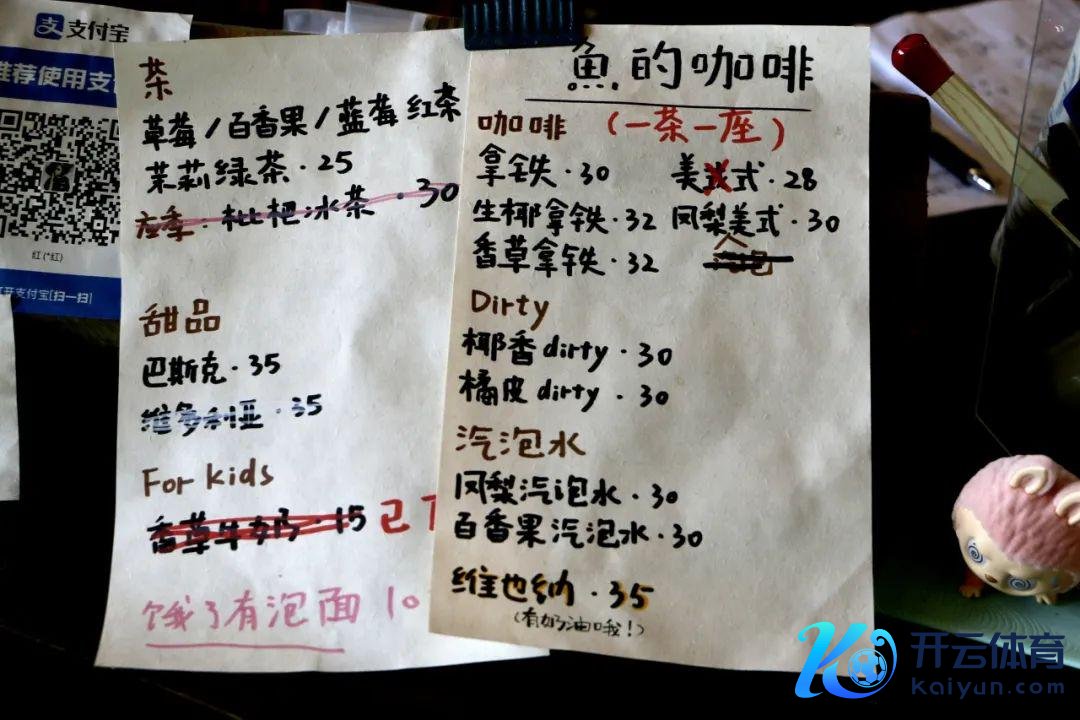 支付宝
推荐使用支
红(*红)
打开支付宝[扫一扫]
茶
草莓/百香果/蓝莓 红茶
茉莉绿茶·25
应季:枇杷冰茶·30
甜品
巴斯克·35
维多利亚·35
For kids
香草牛奶·15 已下
饿了有泡面 10
魚的咖啡
咖啡 (一茶一座)
拿铁·30 美式·28
生椰拿铁·32 凤梨美式·30
香草拿铁·32
Dirty
椰香dirty·30
橘皮dirty·30
汽泡水
凤梨汽泡水·30
百香果汽泡水·30
维也纳·35
(有奶油哦!)
开云体育
kaiyun.com